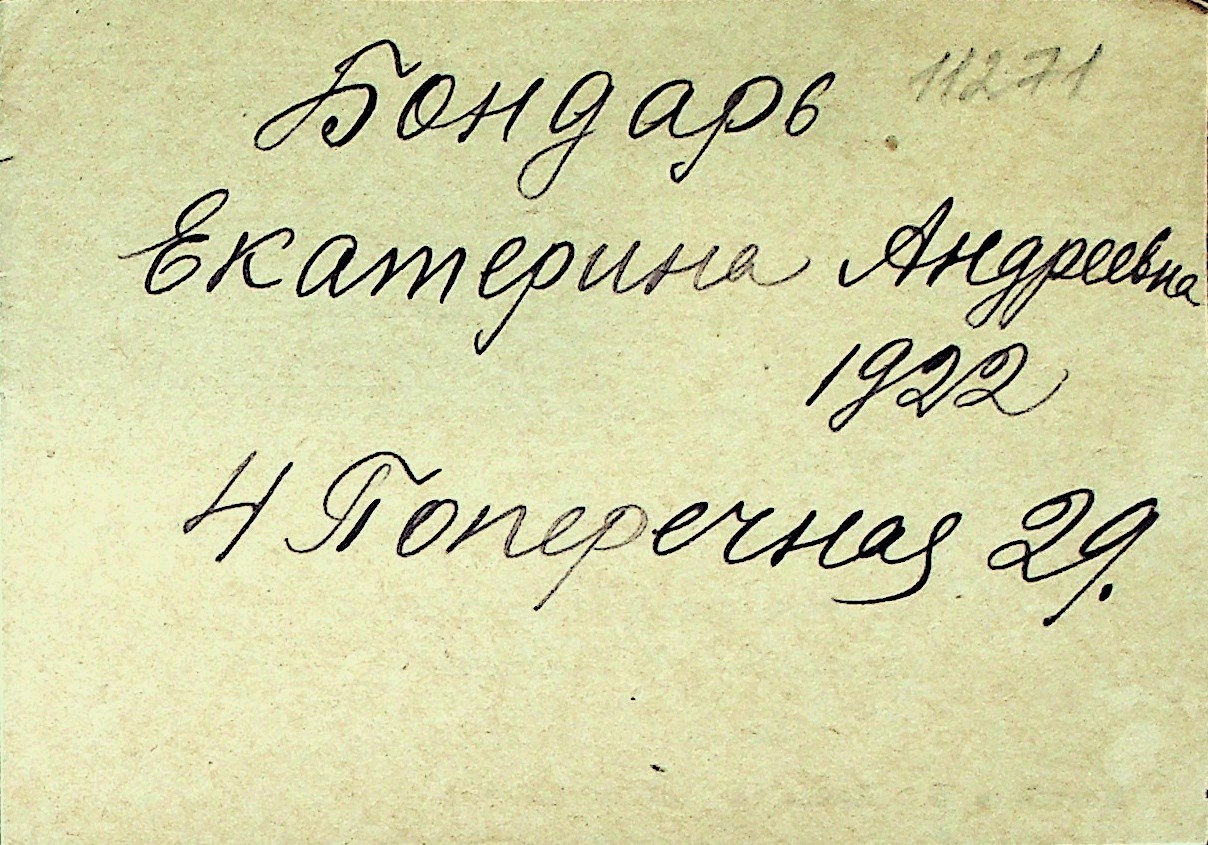 Бондарь 11271
Екатерина Андреевна
1922
4 Поперечная 29.